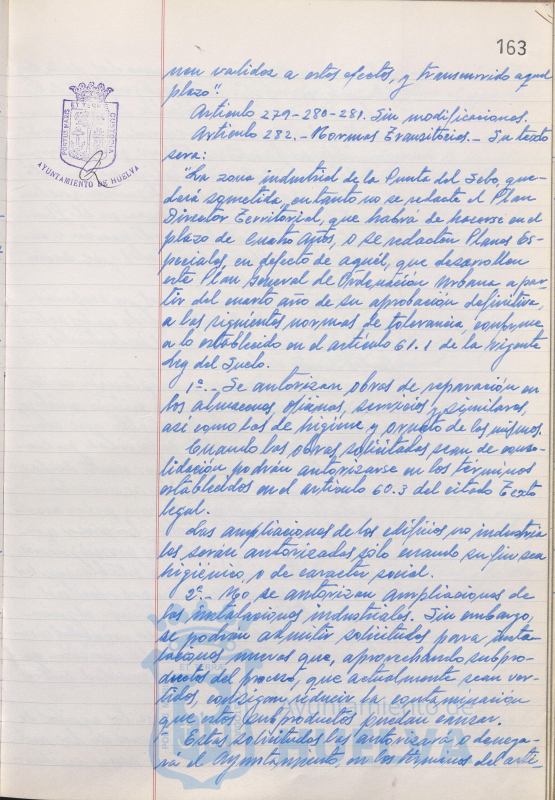 163
PORTUS MARIS ET TERRE CUSTODIA
AYUNTAMIENTO DE HUELVA
ven validos a estos efectos, y transcurrido aquel
plazo".
Articulo 279-280-281. Sin modificaciones.
Articulo 282.- Normas Transitorias.- Su texto
sera:
"La zona industrial de la Punta del Sebo, que-
dará sometida, en tanto no se redacte el Plan
Director Territorial, que habrá de hacerse en el
plazo de cuatro años, o se redacten Planes Es-
peciales, en defecto de aquél, que desarrollen
este Plan General de Ordenación Urbana a par-
tir del cuarto año de su aprobación definitiva,
a las siguientes normas de tolerancia, conforme
a lo establecido en el articulo 61.1 de la vigente
Ley del Suelo.
1º.- Se autorizan obras de reparación en
los almacenes, oficinas, servicios y similares,
así como las de higiene y ornato de los mismos.
Cuando las obras solicitadas sean de conso-
lidación podrán autorizarse en los términos
establecidos en el articulo 60.3 del citado Texto
legal.
Las ampliaciones de los edificios no industria
les serán autorizadas sólo cuando su fin sea
higiénico, o de caracter social.
2º.- No se autorizan ampliaciones de
las instalaciones industriales. Sin embargo,
se podrán admitir solicitudes para insta-
laciones nuevas que, aprovechando subpro-
ductos del proceso, que actualmente sean ver-
tidos, consigan reducir la contaminación
que estos subproductos puedan causar.
Estas solicitudes las autorizará o denega-
rá el Ayuntamiento, en los términos del arti-
Ayuntamiento de
HUELVA